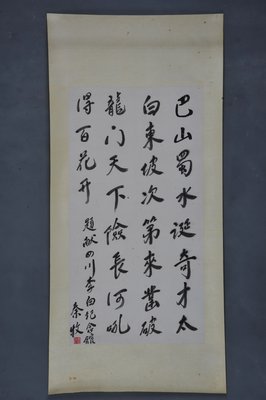 巴山蜀水诞奇才太
白東坡次第來凿破
龍门天下險長河吼
得百花开
題献四川李白纪念館
秦牧